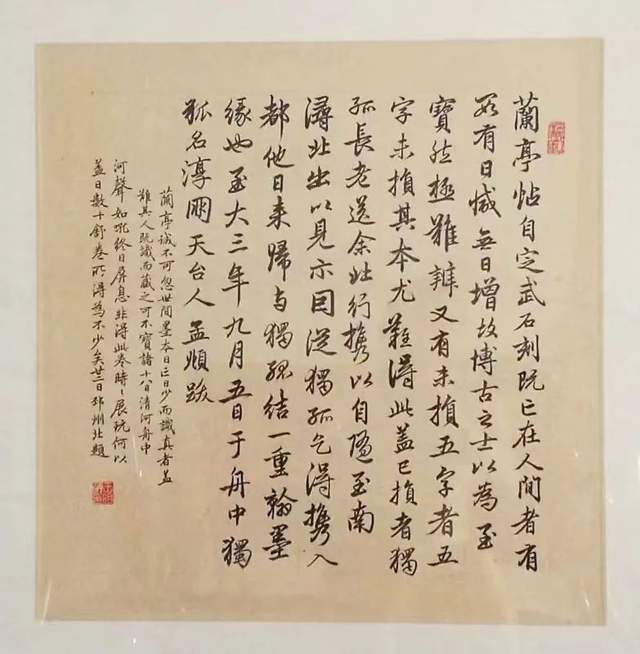 蘭亭帖自定武石刻既亡在人間者有
數有日減無日增故博古之士以為至
寶然極難辨又有未損五字者五
字未損其本尤難得此蓋已損者獨
孤長老送余北行攜以自隨至南
潯北出以見示因從獨孤乞得攜入
都他日来歸與獨孤結一重翰墨
緣也至大三年九月五日于舟中獨
孤名淳朋天台人孟頫跋
蘭亭誠不可忽世間墨本日亡日少而識真者蓋
難其人既識而藏之可不寶諸十八日清河舟中
河聲如吼終日屏息非得此卷時〻展玩何以
盡日數十舒卷所得為不少矣廿二日邳州北題